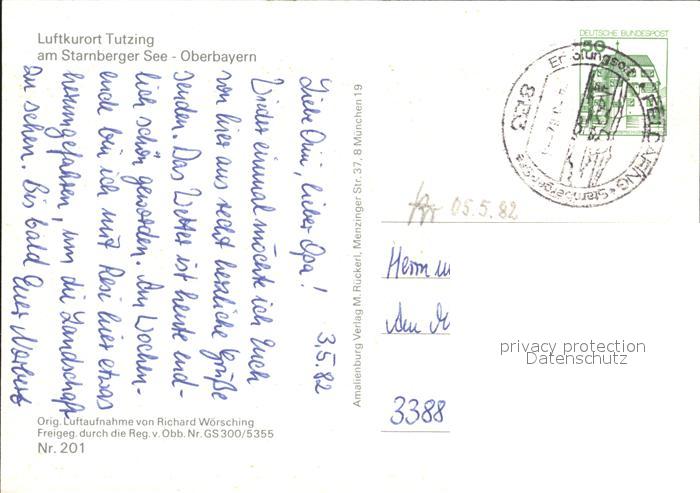 Luftkurort Tutzing
am Starnberger See - Oberbayern
3.5.82
Liebe Omi, lieber Opa!
Wieder einmal möchte ich Euch
von hier aus recht herzliche Grüße
senden. Das Wetter ist heute end-
lich schön geworden. Am Wochen-
ende bin ich mit Resi hier etwas
herumgefahren, um die Landschaft
zu sehen. Bis bald Euer Norbert
Orig. Luftaufnahme von Richard Wörsching
Freigeg. durch die Reg. v. Obb. Nr. GS 300/5355
Nr. 201
Amalienburg Verlag M. Rückerl, Menzinger Str. 37, 8 München 19
DEUTSCHE BUNDESPOST
50
Erholungsort FELDAFING Starnberger
05.5.82
Herrn u
3388
privacy protection
Datenschutz